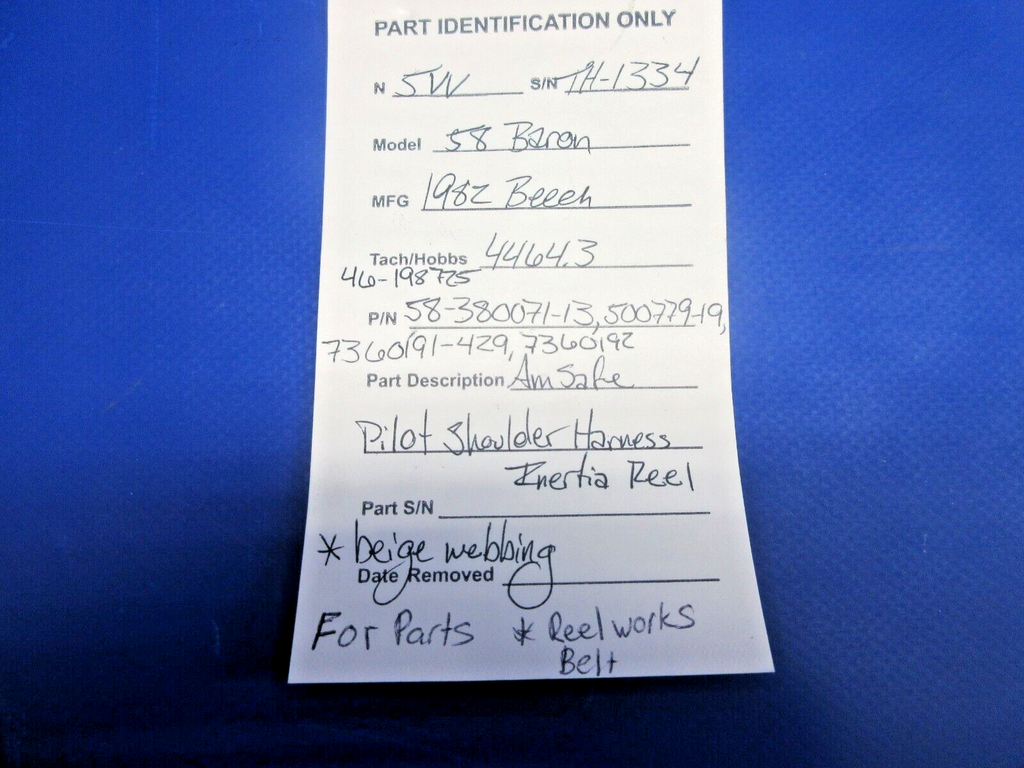 PART IDENTIFICATION ONLY
N 5VV S/N TH-1334
Model 58 Baron
MFG 1982 Beech
Tach/Hobbs 4464.3
46-198725
P/N 58-380071-13, 500779-19,
7360191-429, 7360192
Part Description Am Safe
Pilot Shoulder Harness
Inertia Reel
Part S/N
* beige webbing
Date Removed
For Parts * Reel works
Belt